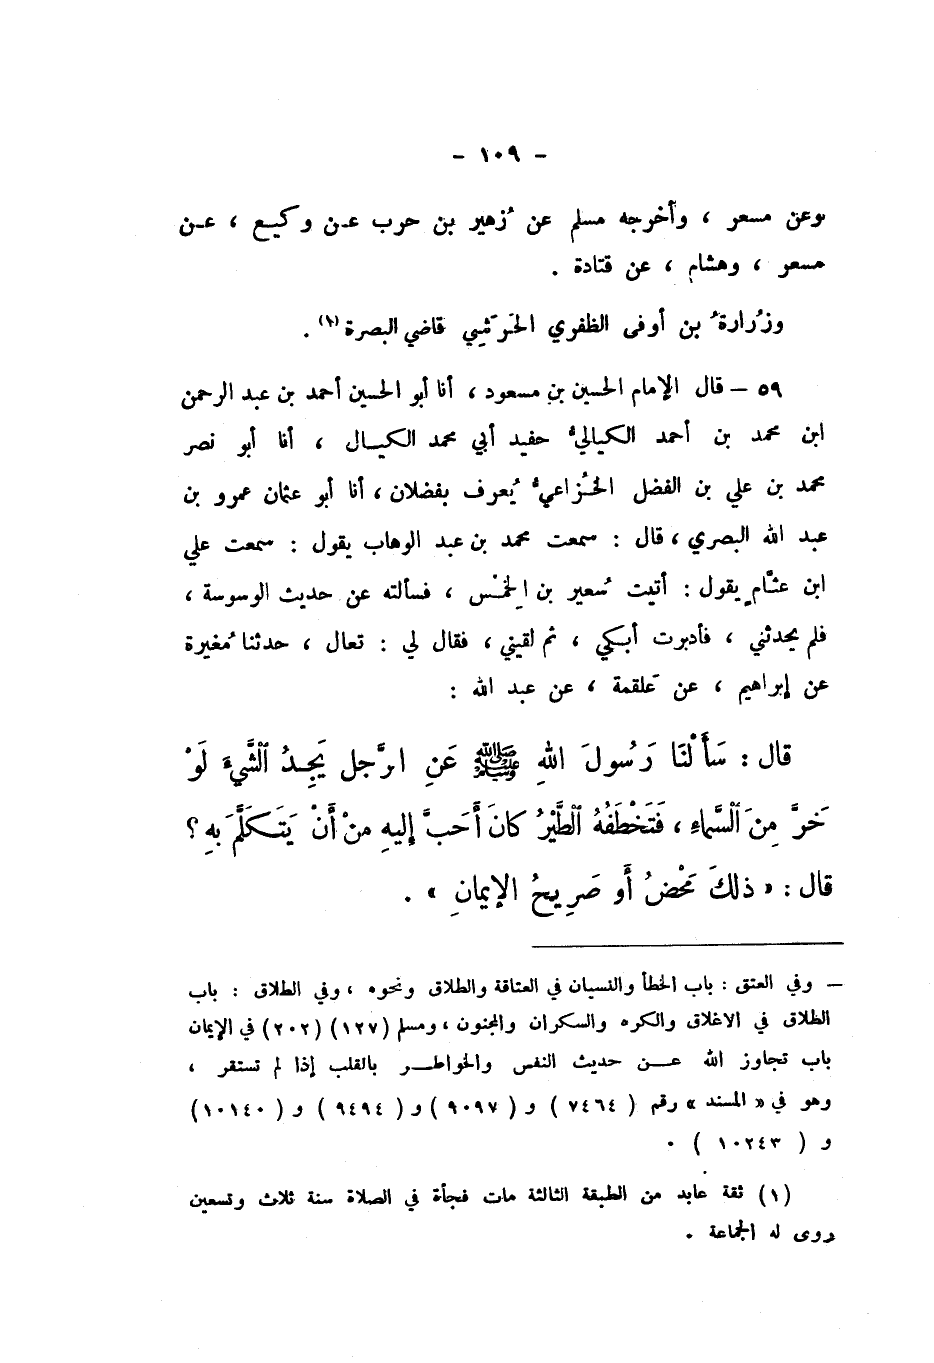 - ١٠٩ -
وعن مسعر ، وأخرجه مسلم عن زُهير بن حرب عـن وكيـع ، عـن
مسعر ، وهشام ، عن قتادة .
وزُرارةُ بن أوفى الظفوي الحَرَشي قاضي البصرة (١) .
٥٩ – قال الإمام الحسين بن مسعود ، أنا أبو الحسين أحمد بن عبد الرحمن
ابن محمد بن أحمد الكياليُّ حفيد أبي محمد الكيـال ، أنا أبو نصر
محمد بن علي بن الفضل الخُزاعيُّ يُعرف بفضلان ، أنا أبو عثمان عمرو بن
عبد الله البصري ، قال : سمعت محمد بن عبد الوهاب يقول : سمعت علي
ابن عثَّامٍ يقول : أتيت سُعير بن الخِمْس ، فسألته عن حديث الوسوسة ،
فلم يحدثني ، فأدبرت أبكي ، ثم لقيني ، فقال لي : تعال ، حدثنا مُغيرة
عن إبراهيم ، عن عَلقمة ، عن عبد الله :
قال : سَأَلْنَا رَسُولَ اللهِ ﷺ عَنِ الرَّجل يَجِـدُ ٱلشَّيءَ لَوْ
خَرَّ مِنَ ٱلسَّماءِ ، فَتَخْطَفُهُ ٱلطَّيْرُ كانَ أَحَبَّ إليهِ منْ أَنْ يَتَـكَلَّمَ بهِ ؟
قال : « ذلكَ مَحْضُ أَو صَرِيحُ الإيمانِ » .
– وفي العتق : باب الخطأ والنسيان في العتاقة والطلاق ونحوه ، وفي الطلاق : باب
الطلاق في الاغلاق والكره والسكران والمجنون ، ومسلم (١٢٧) (٢٠٢) في الإيمان
باب تجاوز الله عـــن حديث النفس والخواطـــر بالقلب إذا لم تستقر ،
وهو في « المسند » رقم ( ٧٤٦٤ ) و ( ٩٠٩٧ ) و ( ٩٤٩٤ ) و ( ١٠١٤٠ )
و ( ١٠٢٤٣ ) .
(١) ثقة عابد من الطبقة الثالثة مات فجأة في الصلاة سنة ثلاث وتسعين
روى له الجماعة .